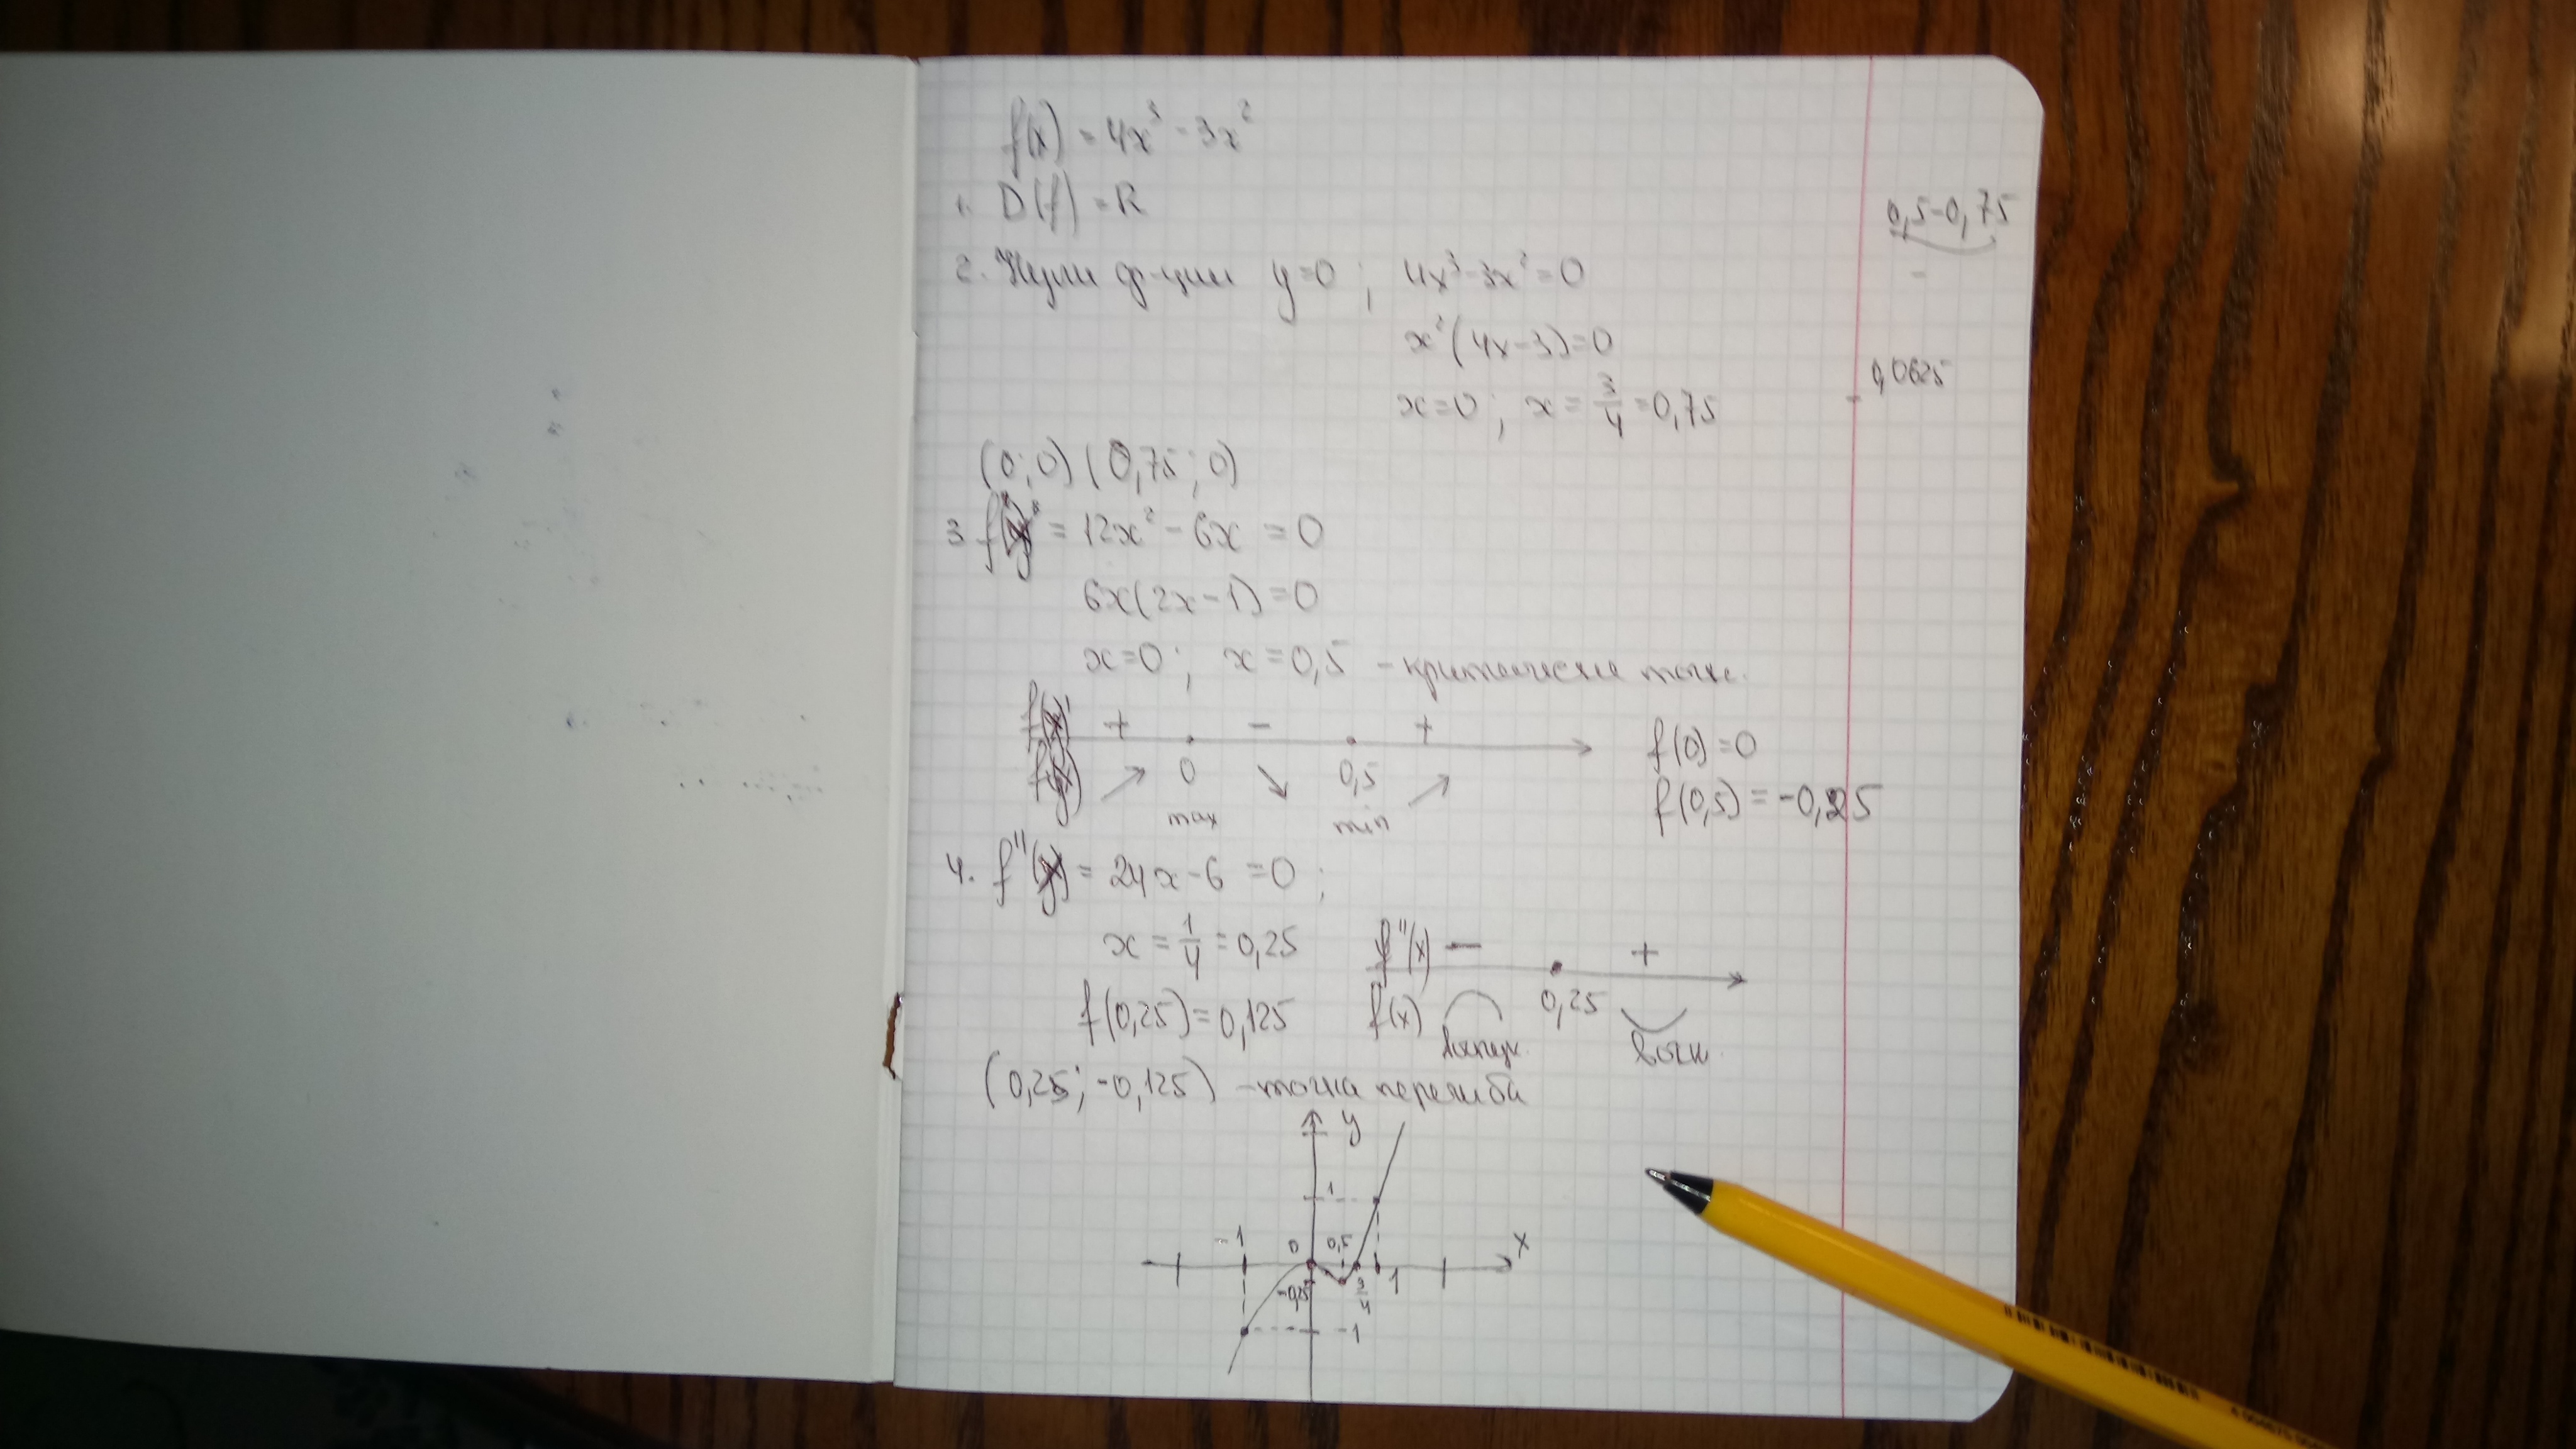 f(x) = 4x³ - 3x²
1. D(f) = R
0,5-0,75
2. Нули ф-ции y=0 ; 4x³-3x²=0
-
x²(4x-3)=0
- 0,0625
x=0 ; x = 3/4 = 0,75
(0;0) (0,75 ; 0)
3 = 12x² - 6x = 0
6x(2x-1)=0
x=0 ; x=0,5 - критические точк.
+ - +
0 0,5
max min
f(0) =0
f(0,5) = -0,25
4. f''(x) = 24x-6 =0 ;
x = 1/4 = 0,25
f''(x) - +
f(0,25)=0,125
f(x) 0,25
выпук. вогн.
(0,25; -0,125) - точка перегиба
y
1
-1 0 0,5 x
-0,25 3/4 1
-1